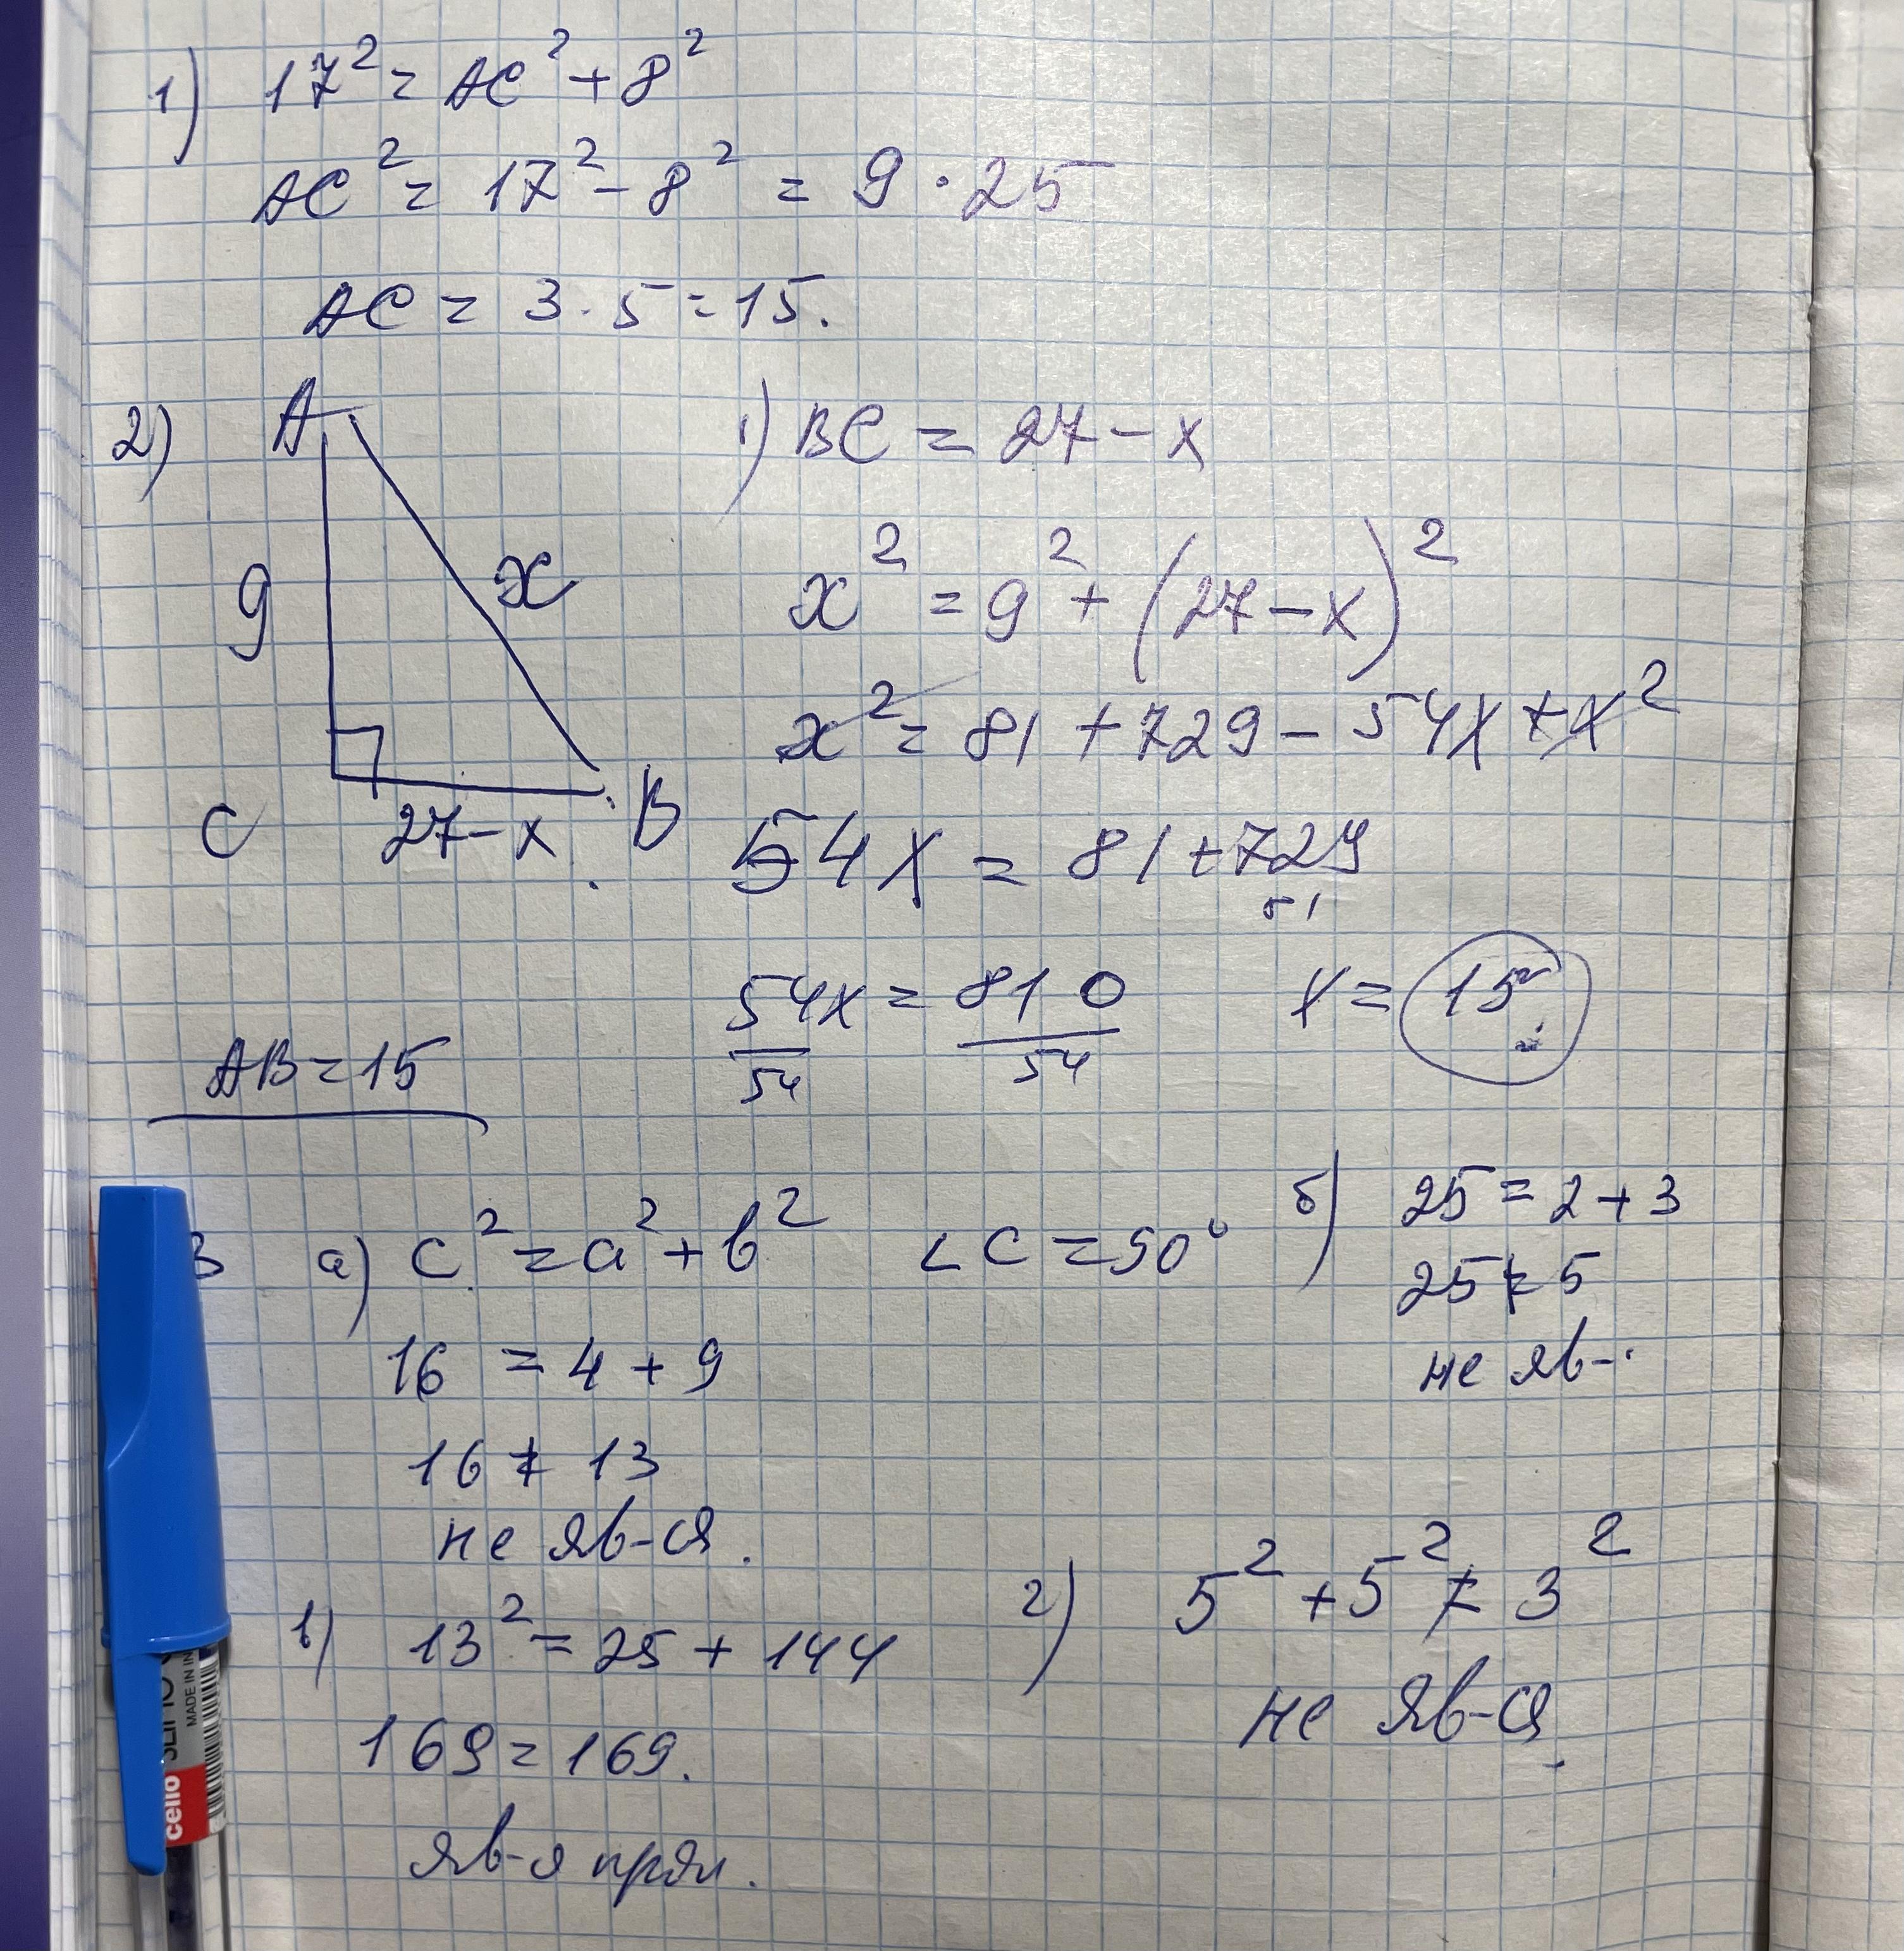 1) 17² = AC² + 8²
AC² = 17² - 8² = 9 · 25
AC = 3 · 5 = 15.
2) A
9
x
C
27-x.
B
1) BC = 27 - x
x² = 9² + (27 - x)²
x² = 81 + 729 - 54x + x²
54x = 81 + 729
54x/54 = 810/54
x = 15
AB = 15
3 а) c² = a² + b² ∠C = 90°
16 = 4 + 9
16 ≠ 13
не яв-ся.
б) 25 = 2 + 3
25 ≠ 5
не яв-.
в) 13² = 25 + 144
169 = 169.
яв-я прям.
г) 5² + 5² ≠ 3²
не яв-ся.
cello
MADE IN IN